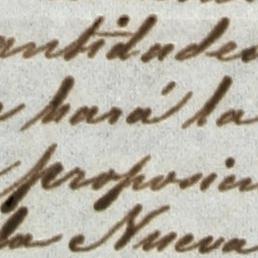 antidades
hará la
proposici
la Nueva